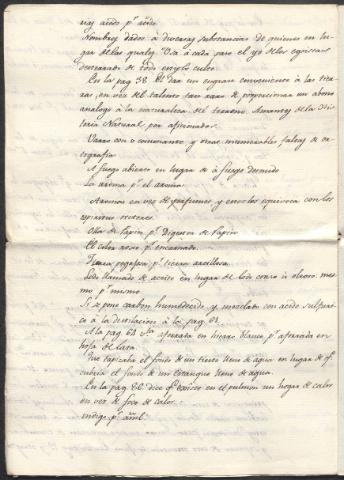 nas años pr años
Nombres dados à diversas substancias de quimica en lu-
gar de las quales usa à cada paso el
desterrados de todo escrito culto.
En la pag 38 se dan un engrase conveniente à las tier-
ras, en vez del talento tan raro de proporcionar un abono
analogo à la naturaleza del terreno. Amantes de la His-
toria Natural, por aficionados.
Varas con v consonante, y otras innumerables faltas de or-
tografia
A fuego abierto en lugar de à fuego desnudo
La arina pr el
Aromas en vez de perfumes, y esto los equivoca con los
espiritus rectores.
Olla de Papin pr Digestor de Papin
El color roxo pr encarnado.
Tierra pegajosa pr tierra arcillosa
Lodo llamado de aceite en lugar de lodo craso
mo pr mismo
Si se pone carbon humedecido, y mezclado con acido sulfuri-
co à la destilacion à la pag 61.
A la pag 64 sta aforrada en hierro blanco, pr aforrada en
hoja de lata.
Que tapizaba el fondo de un tiesto lleno de agua en lugar de qe
cubria el fondo de un estanque lleno de agua.
En la pag 86 dice qe existe en el pulmon un hogar de calor
en vez de foco de calor.
indigo pr añil.